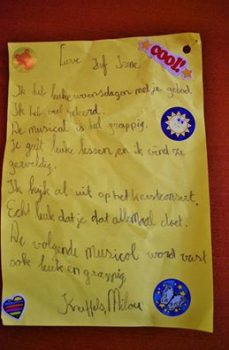 Lieve Juf Irene
COOL!
Ik heb leuke woensdagen met je gehad.
Ik heb veel geleerd.
De musical is heel grappig.
Je geeft leuke lessen, en ik vind ze
geweldig.
Ik kijk al uit op het kerstconsert.
Echt leuk dat je dat allemaal doet.
De volgende musical word vast
ook leuk en grappig
Knuffels, Milou